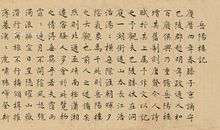 岳陽樓記
慶曆四年春滕子京謫守
巴陵郡越明年政通人和
百廢具興乃重修岳陽樓
增其舊制刻唐賢今人詩
賦於其上屬予作文以記
之予觀夫巴陵勝狀在洞
庭一湖銜遠山吞長江浩
浩湯湯橫無際涯朝暉夕
陰氣象萬千此則岳陽樓
之大觀也前人之述備矣
然則北通巫峽南極瀟湘
遷客騷人多會於此覽物
之情得無異乎若夫霪雨
霏霏連月不開陰風怒號
濁浪排空日星隱曜山岳
潛形商旅不行檣傾楫摧
薄暮溟溟虎嘯猿啼登斯